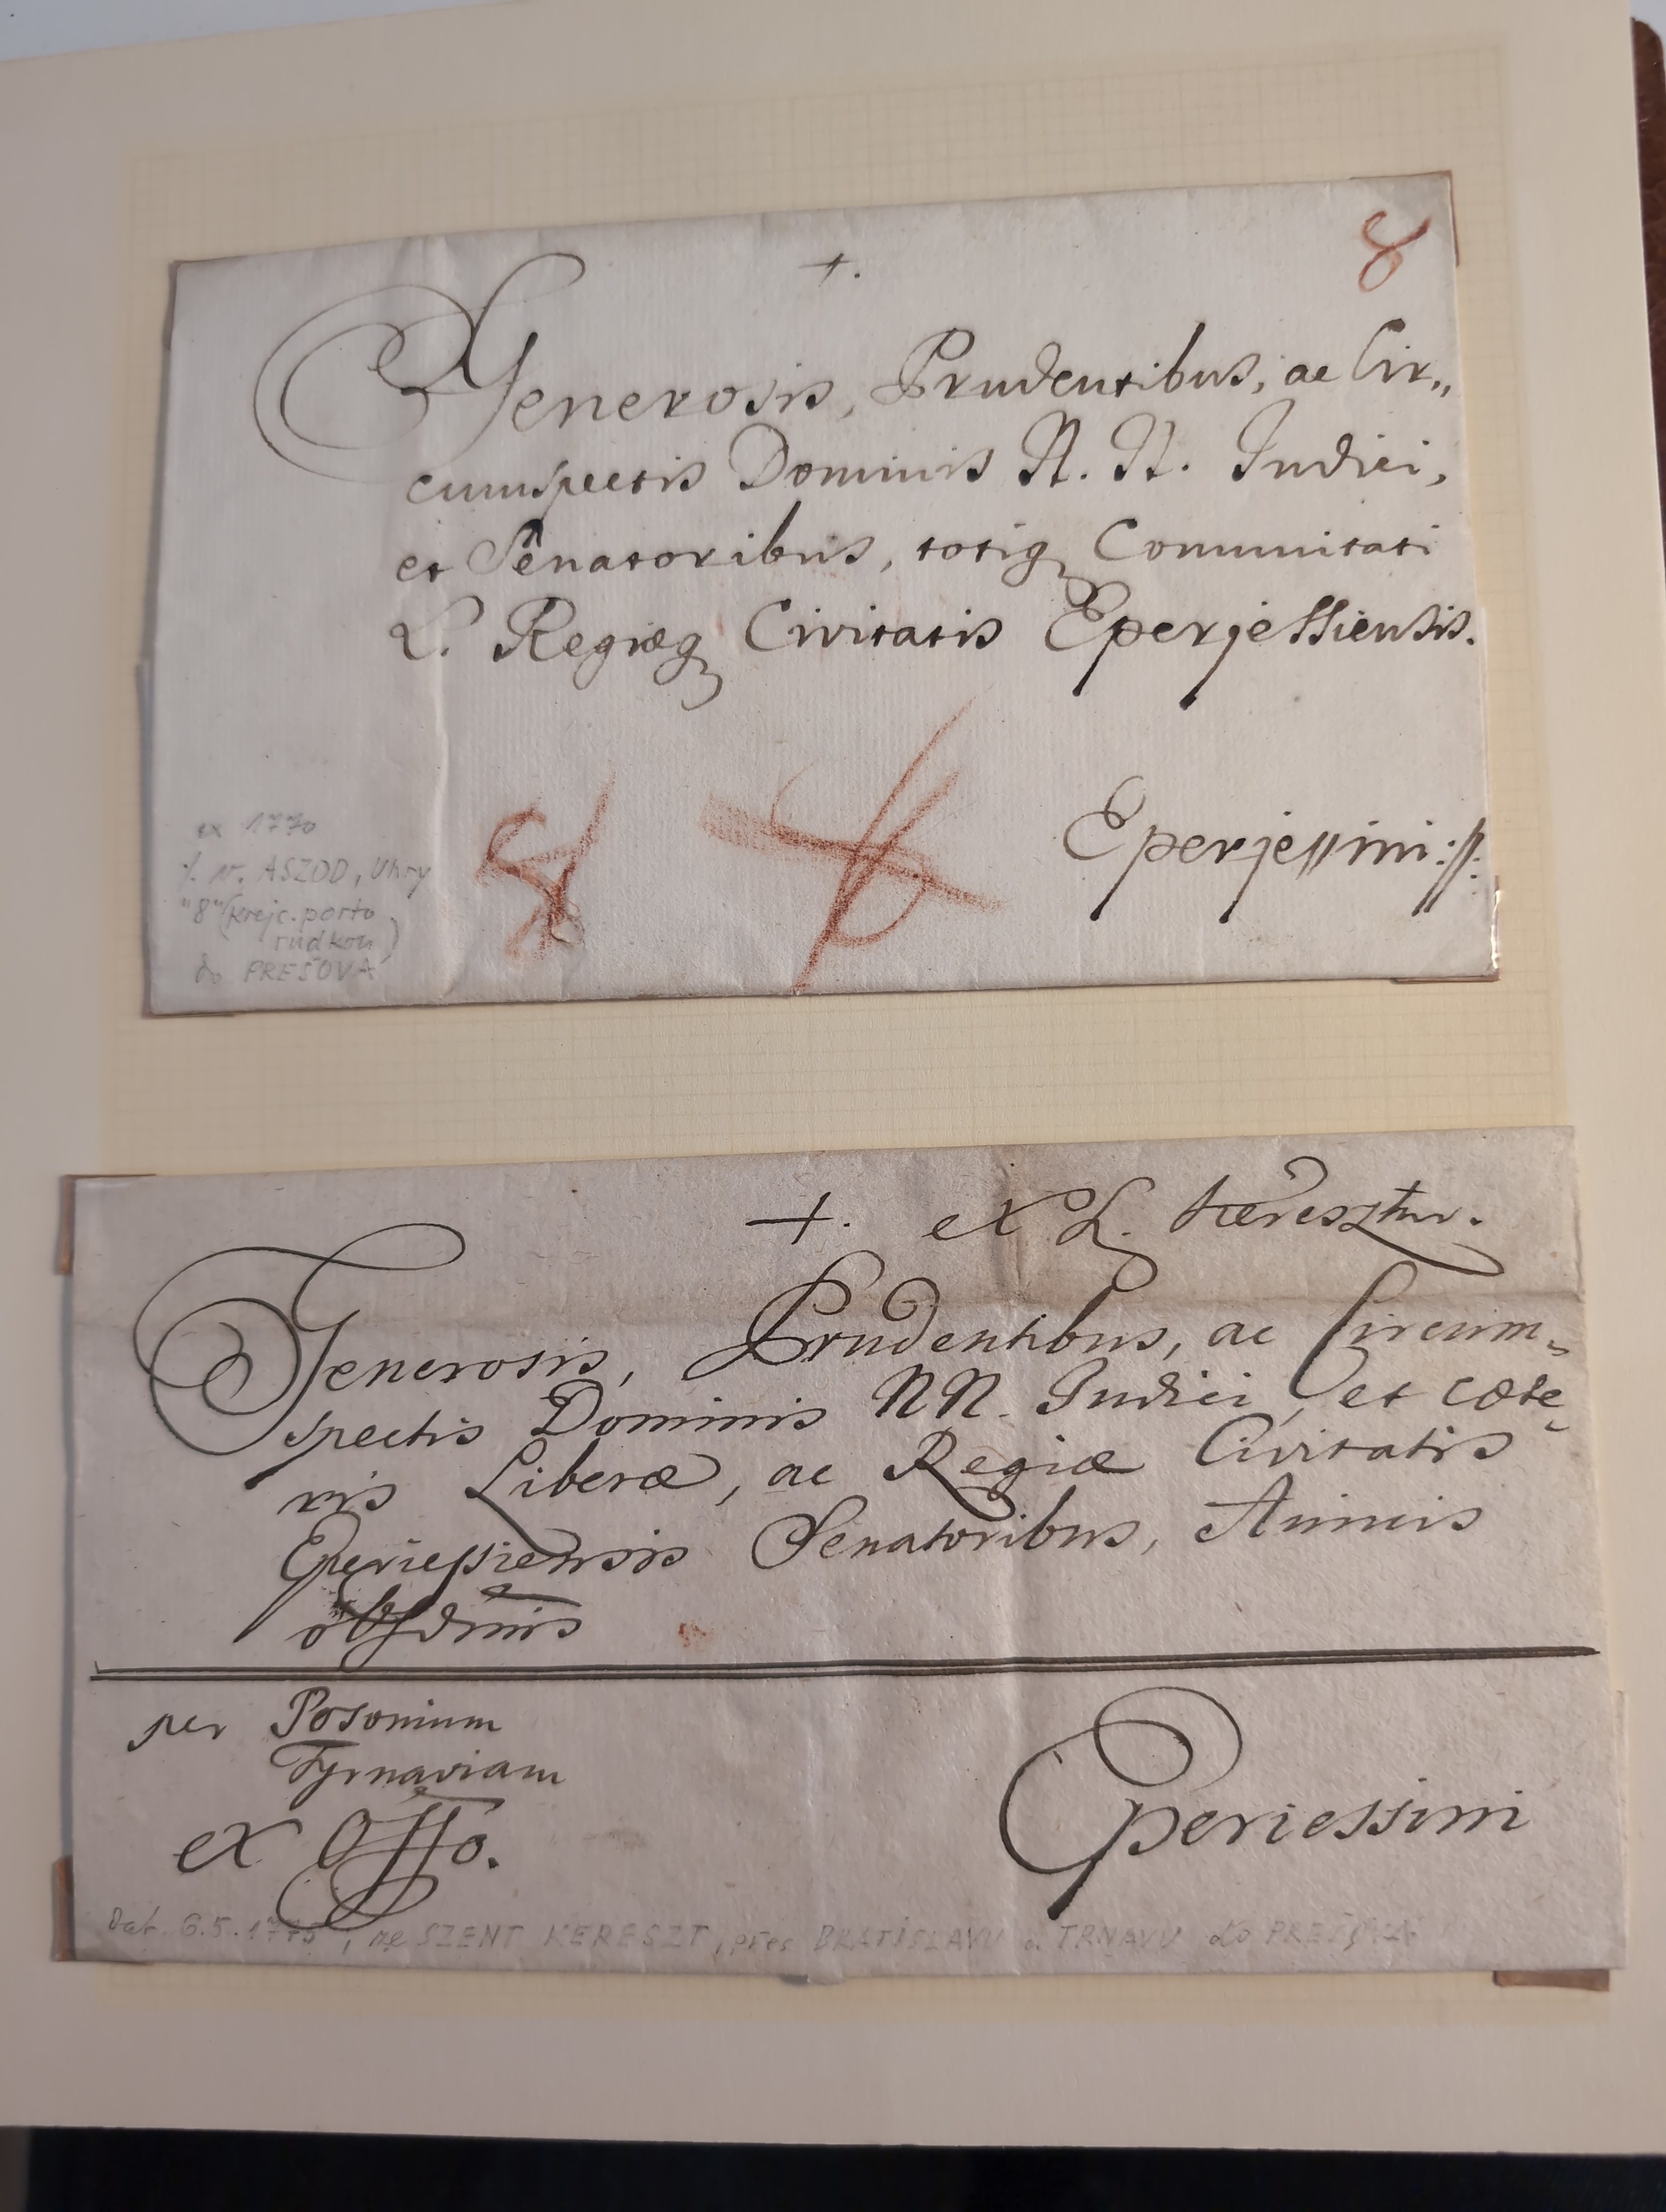 8
+.
Generosis, Prudentibus, ac Cir„
cumspectis Dominis N. N. Judici,
et Senatoribus, totiq Comunitati
L. Regiæq Civitatis Eperjessiensis.
8
Eperjessini
ex 1770
ASZOD, Uhry
"8" (krejc. porto
rudkou)
do PREŠOVA
+. ex
Generosis, Prudentibus, ac Circum-
spectis Dominis NN. Judici, et cæte-
ris Liberæ, ac Regiæ Civitatis
Eperiessiensis Senatoribus, Amicis
obsdmis
per Posonium
Tyrnaviam
ex Offo.
Eperiessini
Dat. 6.5.1775, ze SZENT KERESZT, přes BRATISLAVU a TRNAVU do PREŠOVA